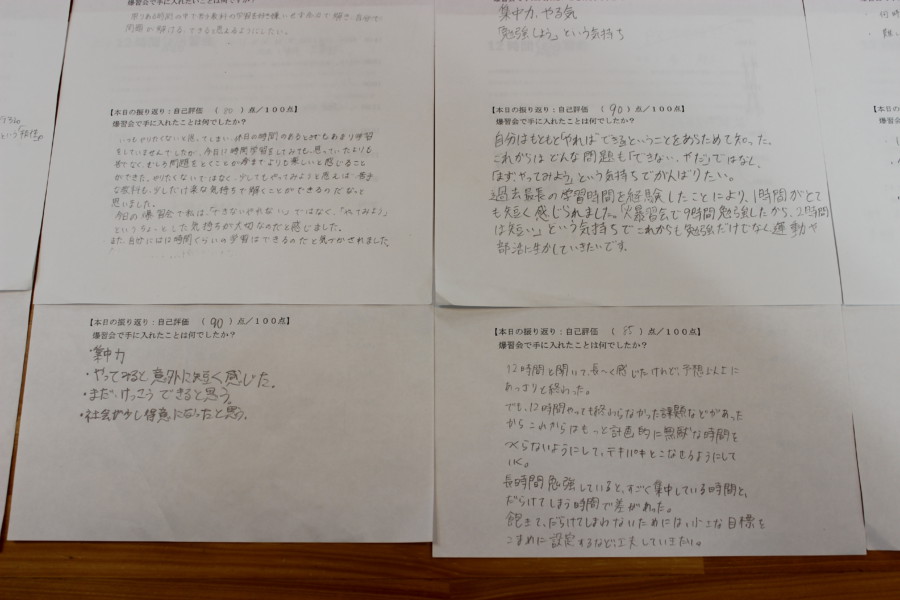 問題が解ける、できると思えるようにしたい。
【本日の振り返り：自己評価　（80）点／100点】
爆習会で手に入れたことは何でしたか？
いつもやりたくないと感じてしまい、休日の時間のあるときでもあまり学習
をしていませんでしたが、今日12時間学習をしてみても、思っていたよりも
苦でなく、むしろ問題をとくことが今までよりも楽しいと感じること
ができた。やりたくないではなく、少してもやってみようと思えば、苦手
な教科も、少しだけ楽な気持ちで解くことができるのだなっと
思いました。
今日の爆習会で私は、「できないやれない」ではなく、「やってみよう」
というちょっとした気持ちが大切なのだと感じました。
また、自分には12時間くらいの学習はできるのだと気づかされました。
集中力、やる気
「勉強しよう」という気持ち
【本日の振り返り：自己評価　（90）点／100点】
爆習会で手に入れたことは何でしたか？
自分はもともと「やればできる」ということをあらためて知った。
これからはどんな問題も「できない、ヤだ」ではなく、
「まず、やってみよう」という気持ちでがんばりたい。
過去最長の学習時間を経験したことにより、1時間がとて
も短く感じられました。「大爆習会で9時間勉強したから、2時間
は短い」という気持ちでこれからも勉強だけじなく運動や
部活に生かしていきたいです。
【本日の振り返り：自己評価　（90）点／100点】
爆習会で手に入れたことは何でしたか？
・集中力
・やってみると意外に短く感じた。
・まだ、けっこうできると思う。
・社会が少し得意になったと思う。
【本日の振り返り：自己評価　（85）点／100点】
爆習会で手に入れたことは何でしたか？
12時間と聞いて、長〜く感じたけれど、予想以上に
あっさりと終わった。
でも、12時間やっても終わらなかった課題などがあった
からこれからはもっと計画的に無駄な時間を
つくらないようにして、テキパキとこなせるようにして
いく。
長時間勉強していると、すごく集中している時間と、
だらけてしまう時間で差があった。
飽きて、だらけてしまわないためには、小さな目標を
こまめに設定するなど、工夫していきたい。